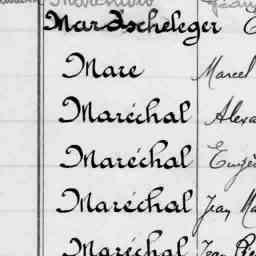 Mardscheleger
Mare Marcel
Maréchal Alexa
Maréchal Eugè
Maréchal Jean Ma
Maréchal Jean Pie